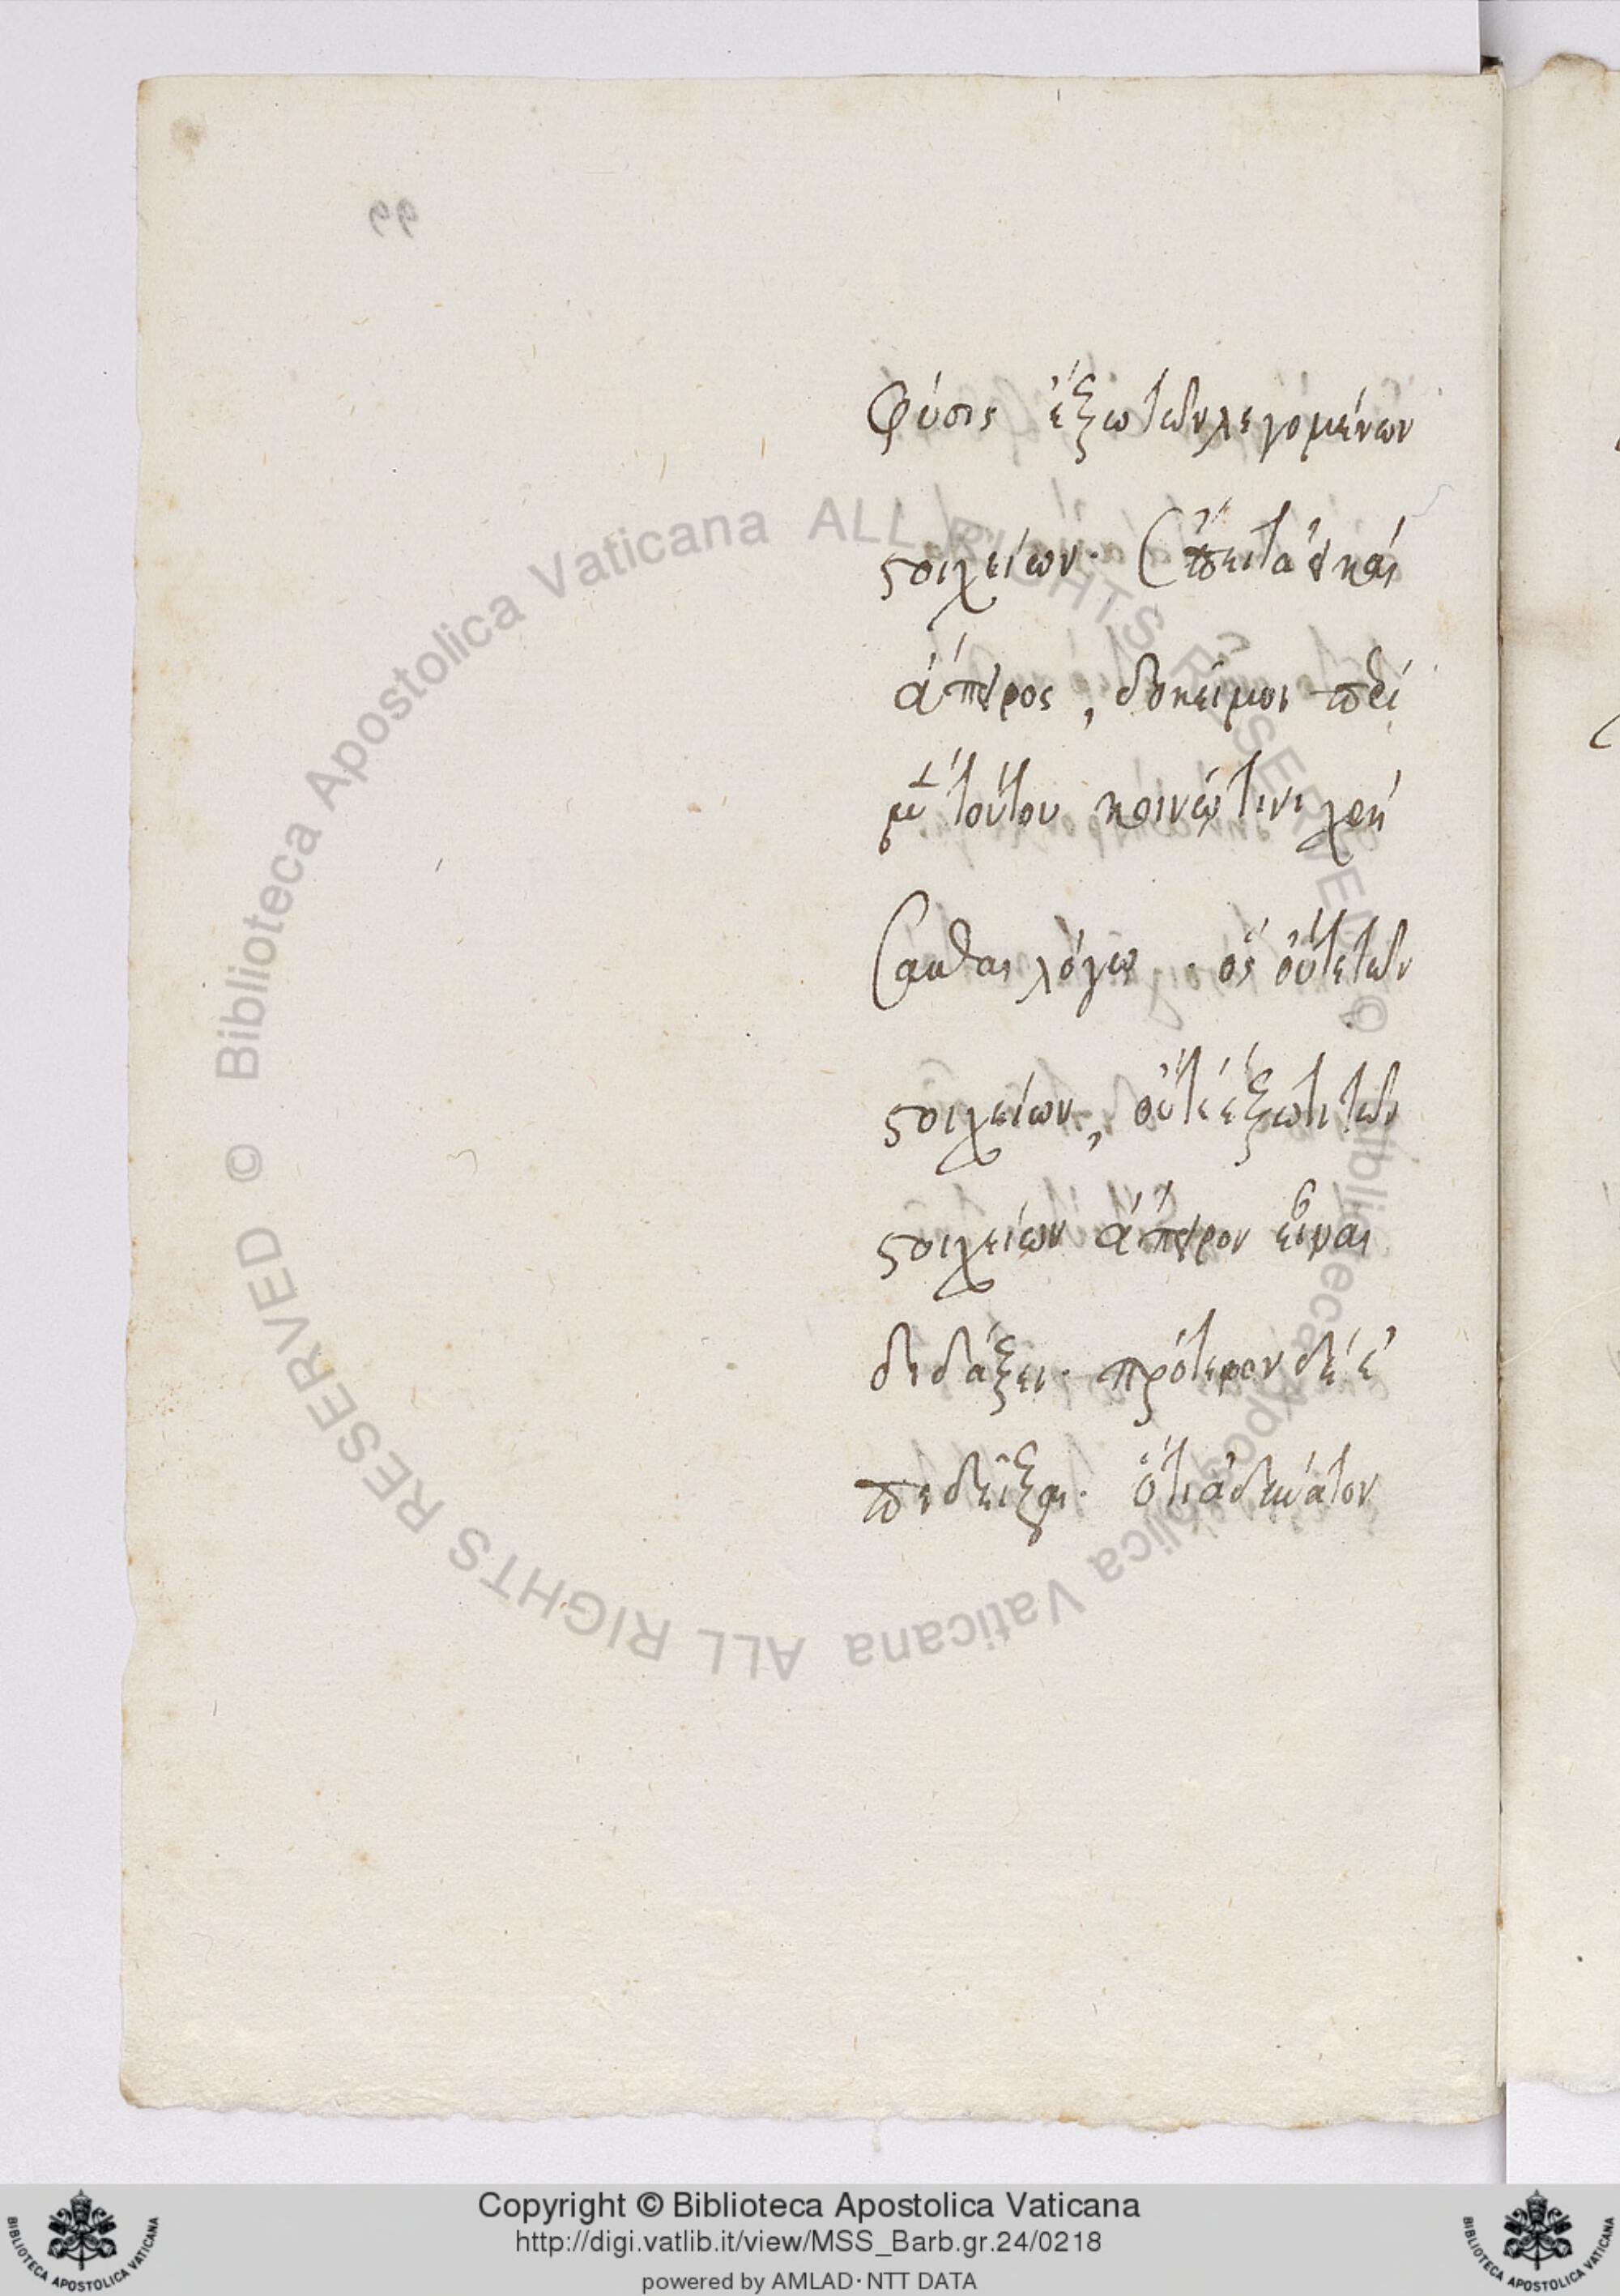 φύσις ἔξω τῶν λεγομένων
στοιχείων. ἔπειτα εἰ καὶ
ἄπειρος, δοκεῖ μοι περὶ
μὲν τούτου κοινῷ τινι χρή
σασθαι λόγῳ. ὃς οὔτε τῶν
στοιχείων, οὔτε ἔξω τι τῶν
στοιχείων ἄπειρον εἶναι
διδάξει. πρότερον δὲ ἐ
πιδεῖξαι. ὅτι ἀδύνατον
99
© Biblioteca Apostolica Vaticana ALL RIGHTS RESERVED © Biblioteca Apostolica Vaticana ALL RIGHTS RESERVED
Copyright © Biblioteca Apostolica Vaticana
http://digi.vatlib.it/view/MSS_Barb.gr.24/0218
powered by AMLAD·NTT DATA
BIBLIOTECA APOSTOLICA VATICANA
BIBLIOTECA APOSTOLICA VATICANA